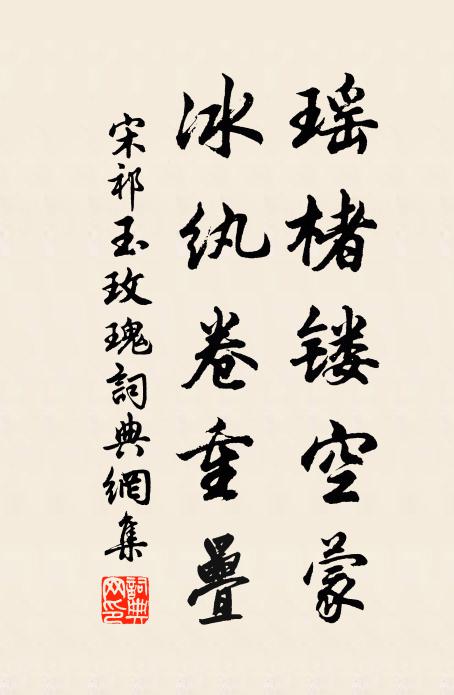 瑶楮镂空蒙
冰纨卷重疊
宋祁玉玫瑰詞典網集
詞典网印